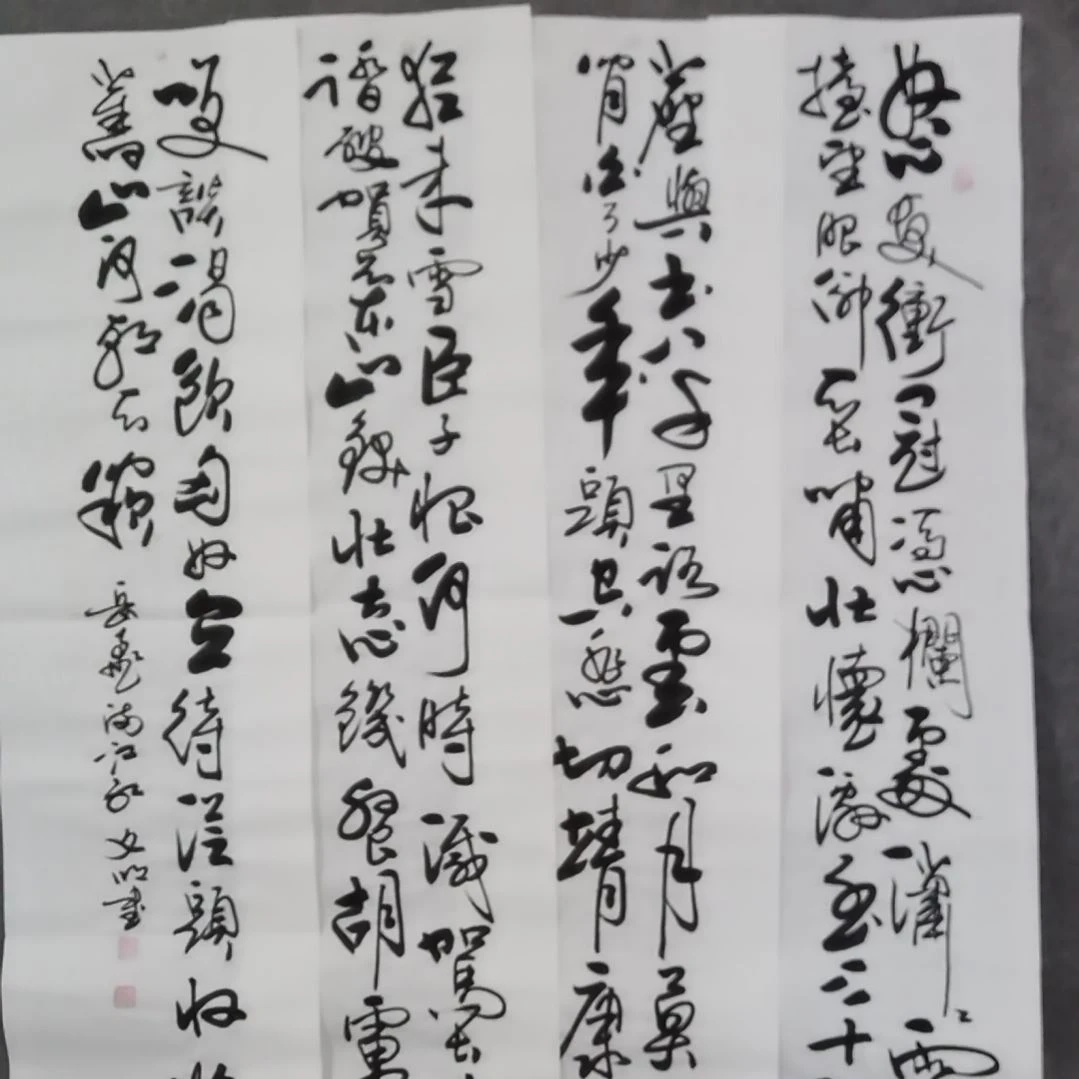 怒髮衝冠憑欄處瀟瀟雨
擡望眼仰天長嘯壯懷激烈三十
塵與土八千里路雲和月莫
閒白了少年頭空悲切靖康
猶未雪臣子恨何時滅駕長
踏破賀蘭山缺壯志饑餐胡虜
笑談渴飲匈奴血待從頭收拾
舊山河朝天闕
岳飛滿江紅 書